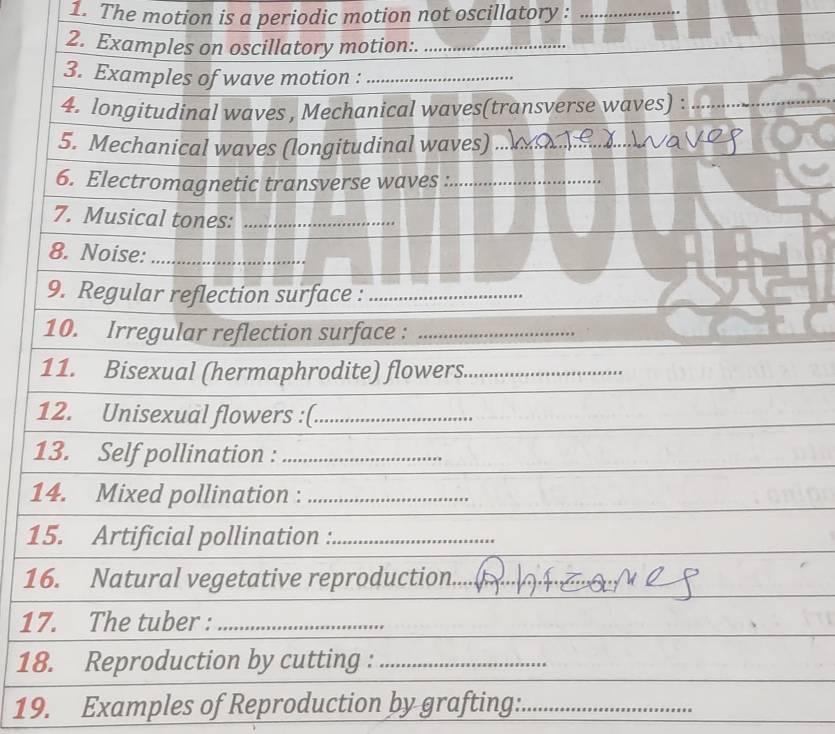 1. The motion is a periodic motion not oscillatory : ........................
2. Examples on oscillatory motion:. ................................
3. Examples of wave motion : ................................
4. longitudinal waves , Mechanical waves(transverse waves) : ................................
5. Mechanical waves (longitudinal waves) ... water waves
6. Electromagnetic transverse waves :................................
7. Musical tones: ................................
8. Noise: ................................
9. Regular reflection surface : ................................
10. Irregular reflection surface : ................................
11. Bisexual (hermaphrodite) flowers................................
12. Unisexual flowers :(................................
13. Self pollination : ................................
14. Mixed pollination : ................................
15. Artificial pollination :................................
16. Natural vegetative reproduction....
17. The tuber : ................................
18. Reproduction by cutting : ................................
19. Examples of Reproduction by grafting:................................
MAMDOU